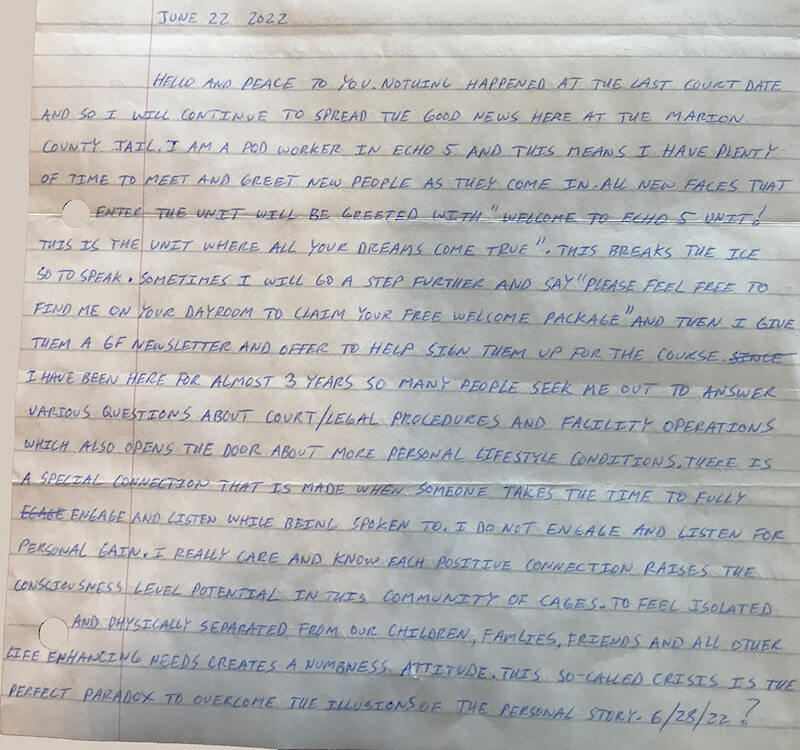 JUNE 22 2022
HELLO AND PEACE TO YOU. NOTHING HAPPENED AT THE LAST COURT DATE
AND SO I WILL CONTINUE TO SPREAD THE GOOD NEWS HERE AT THE MARION
COUNTY JAIL. I AM A POD WORKER IN ECHO 5 AND THIS MEANS I HAVE PLENTY
OF TIME TO MEET AND GREET NEW PEOPLE AS THEY COME IN. ALL NEW FACES THAT
ENTER THE UNIT WILL BE GREETED WITH "WELCOME TO ECHO 5 UNIT!
THIS IS THE UNIT WHERE ALL YOUR DREAMS COME TRUE". THIS BREAKS THE ICE
SO TO SPEAK. SOMETIMES I WILL GO A STEP FURTHER AND SAY "PLEASE FEEL FREE TO
FIND ME ON YOUR DAYROOM TO CLAIM YOUR FREE WELCOME PACKAGE" AND THEN I GIVE
THEM A GF NEWSLETTER AND OFFER TO HELP SIGN THEM UP FOR THE COURSE. SINCE
I HAVE BEEN HERE FOR ALMOST 3 YEARS SO MANY PEOPLE SEEK ME OUT TO ANSWER
VARIOUS QUESTIONS ABOUT COURT/LEGAL PROCEDURES AND FACILITY OPERATIONS
WHICH ALSO OPENS THE DOOR ABOUT MORE PERSONAL LIFESTYLE CONDITIONS. THERE IS
A SPECIAL CONNECTION THAT IS MADE WHEN SOMEONE TAKES THE TIME TO FULLY
EGAGE ENGAGE AND LISTEN WHILE BEING SPOKEN TO. I DO NOT ENGAGE AND LISTEN FOR
PERSONAL GAIN. I REALLY CARE AND KNOW EACH POSITIVE CONNECTION RAISES THE
CONSCIOUSNESS LEVEL POTENTIAL IN THIS COMMUNITY OF CAGES. TO FEEL ISOLATED
AND PHYSICALLY SEPARATED FROM OUR CHILDREN, FAMLIES, FRIENDS AND ALL OTHER
LIFE ENHANCING NEEDS CREATES A NUMBNESS ATTITUDE. THIS SO-CALLED CRISIS IS THE
PERFECT PARADOX TO OVERCOME THE ILLUSIONS OF THE PERSONAL STORY. 6/28/22?